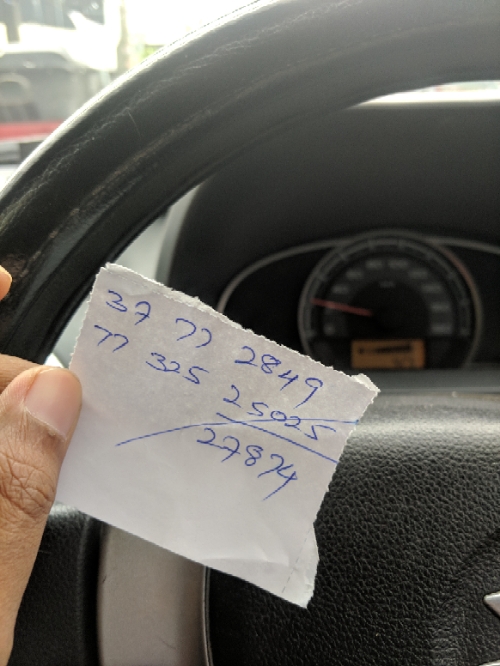 37 77 2849
77 325 25025
27874